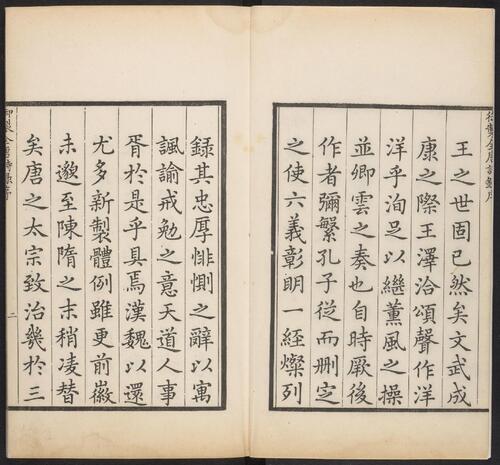 王之世固已然矣文武成
康之際王澤洽頌聲作洋
洋乎洵足以繼薰風之操
並卿雲之奏也自時厥後
作者彌繁孔子從而刪定
之使六義彰明一經燦列
錄其忠厚悱惻之辭以寓
諷諭戒勉之意天道人事
胥於是乎具焉漢魏以還
尤多新製體例雖更前徽
未邈至陳隋之末稍凌替
矣唐之太宗致治幾於三
二